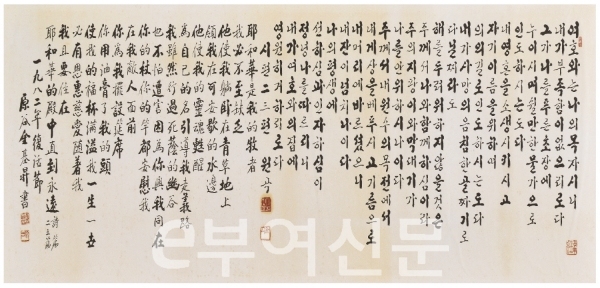 여호와는나의목자시니
내가부족함이없으리로다
그가나를푸른초장에
누이시며쉴만한물가으로
인도하시는도다
내영혼을소생시키시고
자기이름을위하여
의의길로인도하시는도다
내가사망의음침한골짜기로
다닐찌라도
해를두려워하지않을것은
주께서나와함께하심이라
주의지팡이와막대기가
나를안위하시나이다
주께서내원수의목전에서
내게상을베푸시고기름으로
내머리에바르셨으니
내잔이넘치나이다
나의평생에
선하심과인자하심이
정녕나를따르리니
내가여호와의집에
영원히거하리로다
시편二三편
耶和華是我的牧者
我必不至缺乏
他使我躺臥在青草地上
領我在可安歇的水邊
他使我的靈魂甦醒
為自己的名引導我走義路
我雖然行過死蔭的幽谷
也不怕遭害因為你與我同在
你的杖你的竿都安慰我
在我敵人面前
你為我擺設筵席
你用油膏了我的頭
使我的福杯滿溢我一生一世
必有恩惠慈愛隨著我
我且要住在
耶和華的殿中直到永遠 詩篇二三篇
一九八二年復活節
原谷金基昇書
e부여신문